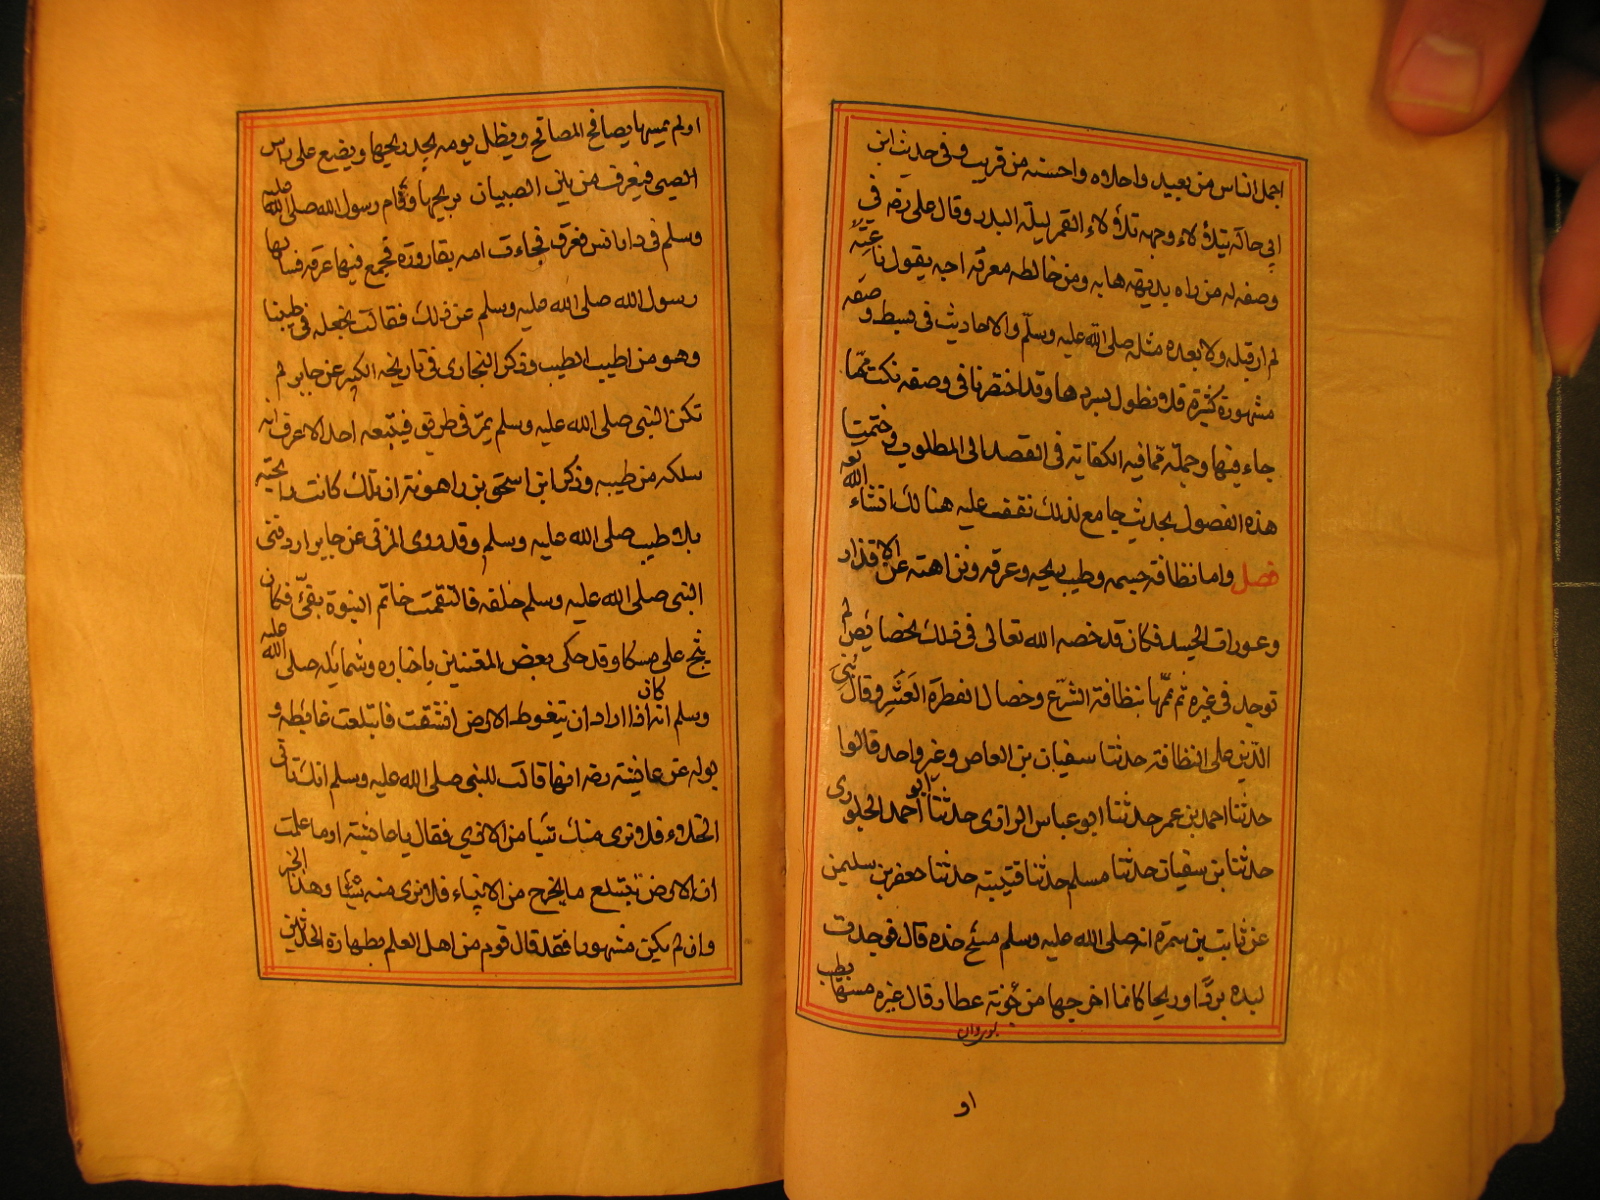 اجمل الناس من بعيد واحلاه واحسنه من قريب وفى حديث ابن
ابي حاله يتلألاء وجهه تلألاء القمر ليلة البدر وقال على رضه في
وصفه له من راه بديهة هابه ومن خالطه معرفة احبه يقول ناعته
لم ار قبله ولا بعده مثله صلى الله عليه وسلم والاحاديث فى بسط وصفه
مشهورة كثيرة فلا نطول بسردها وقد اختصرنا فى وصفه نكت مما
جاء فيها وجملة مما فيه الكفاية فى القصد الى المطلوب وختمت
هذه الفصول بحديث جامع لذلك تقف عليه هنالك انشاء الله
فصل واما نظافة جسمه وطيب ريحه وعرقه ونزاهته عن الاقذار
وعورات الجسد فكان قد خصه الله تعالى فى ذلك بخصايص لم
توجد فى غيره ثم تممها بنظافة الشرع وخصال الفطرة العشر وقال بنى
الدين على النظافة حدثنا سفيان بن العاص وغير واحد قالوا
حدثنا احمد بن عمر حدثنا ابو عباس الرازى حدثنا ابو احمد الجلودى
حدثنا بن سفيان حدثنا مسلم حدثنا قتيبة حدثنا جعفر بن سليمن
عن ثابت بن سمرة انه صلى الله عليه وسلم مسح خده قال فوجدت
ليده بردًا وريحا كانما اخرجها من جونة عطار وقال غيره مسها بطيب
او
او لم يمسها يصافح المصافح ويظل يومه يجد ريحها ويضع على راس
الصبى فيعرف من بين الصبيان بريحها وقام رسول الله صلى الله عليه
وسلم فى دار انس فعرق فجاءت امه بقارورة تجمع فيها عرقه فسالها
رسول الله صلى الله عليه وسلم عن ذلك فقالت نجعله فى طيبنا
وهو من اطيب الطيب وذكر البخارى فى تاريخه الكبير عن جابر لم
تكن النبى صلى الله عليه وسلم يمرّ فى طريق فيتبعه احد الا عرف انه
سلكه من طيبه وذكر ابن اسحق بن راهويه ان تلك كانت رايحته
بلا طيب صلى الله عليه وسلم وقد روى المزنى عن جابر اردفنى
النبى صلى الله عليه وسلم خلفه فالتقمت خاتم النبوة بفىّ فكان
ينج على مسكا وقد حكى بعض المعتنين باخباره وشمايله صلى الله عليه
وسلم انه كان اذا اراد ان يتغوط الارض انشقت فابتلعت غايطه و
بوله عن عايشة رضه انها قالت للنبى صلى الله عليه وسلم انك تاتى
الخلاء فلا نرى منك شيا من الاذي فقال يا عايشة اوما علمت
ان الارض تبتلع ما يخرج من الانبياء فلا نرى منه شيئا وهذا الخبر
وان لم يكن مشهورا فقد قال قوم من اهل العلم بطهارة الحدثين